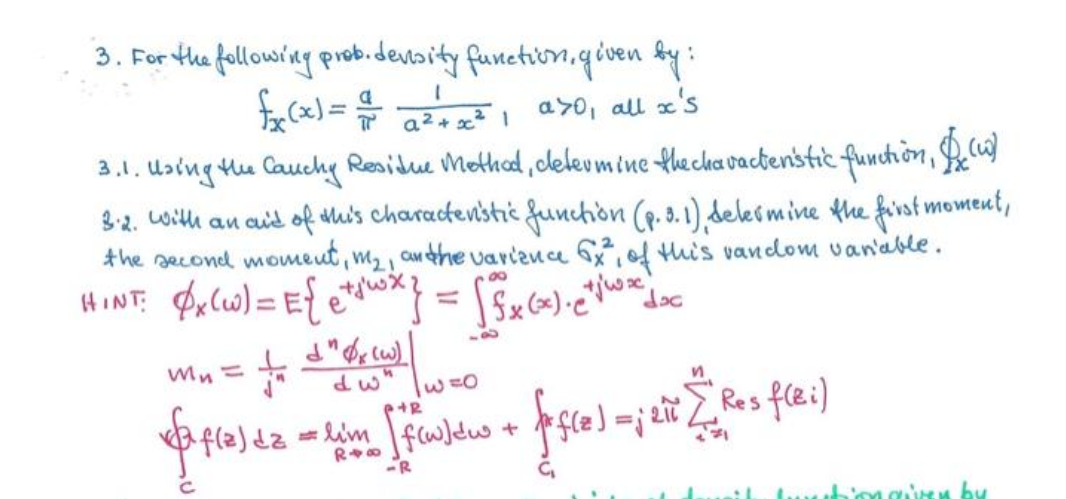 3. For the following prob. density function, given by:
f_X(x) = a/π 1/(a² + x²), a>0, all x's
3.1. Using the Cauchy Residue Method, determine the characteristic function, Φ_x(ω)
3.2. With an aid of this characteristic function (p. 3.1), determine the first moment,
the second moment, m₂, and the variance σ_x², of this random variable.
HINT: φ_x(ω) = E{e^{+jωX}} = ∫_{-∞}^{∞} f_x(x)·e^{+jωx} dx
m_n = 1/jⁿ dⁿφ_x(ω)/dωⁿ |_{ω=0}
∮_C f(z) dz = lim_{R→∞} ∫_{-R}^{+R} f(ω)dω + ∮_{C₁} f(z) = j2π Σ_{i=1}^{n} Res f(zi)